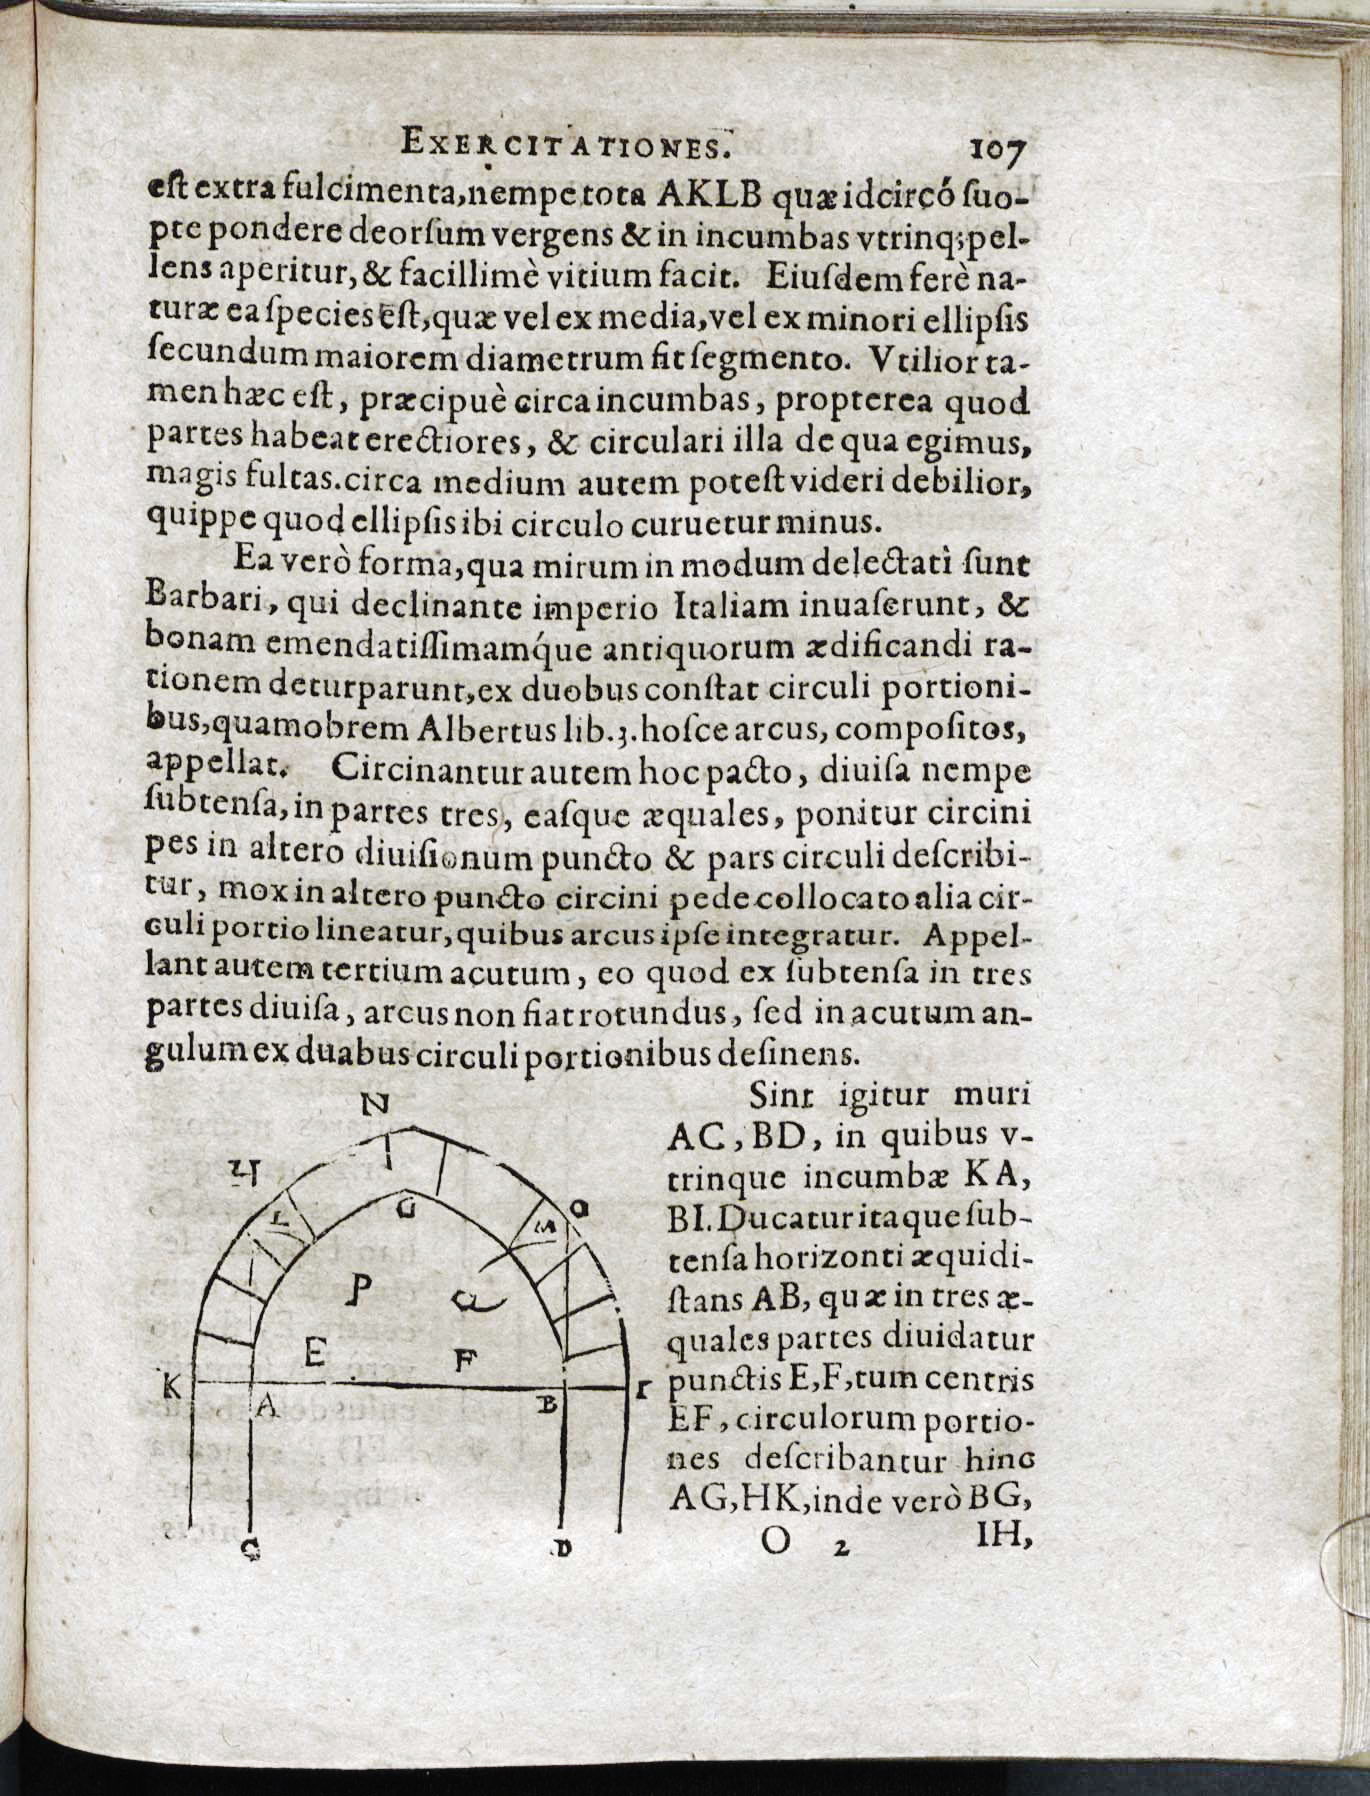 EXERCITATIONES. 107
est extra fulcimenta, nempe tota AKLB quæ idcircó ſuo-
pte pondere deorſum vergens & in incumbas vtrinq; pel-
lens aperitur, & facillimè vitium facit. Eiuſdem ferè na-
turæ ea ſpecies est, quæ vel ex media, vel ex minori ellipſis
ſecundum maiorem diametrum fit ſegmento. Vtilior ta-
men hæc eſt, præcipuè circa incumbas, propterea quod
partes habeat erectiores, & circulari illa de qua egimus,
magis fultas. circa medium autem poteſt videri debilior,
quippe quod ellipſis ibi circulo curuetur minus.
Ea verò forma, qua mirum in modum delectati ſunt
Barbari, qui declinante imperio Italiam inuaſerunt, &
bonam emendatiſſimamq́ue antiquorum ædificandi ra-
tionem deturparunt, ex duobus conſtat circuli portioni-
bus, quamobrem Albertus lib. 3. hoſce arcus, compoſitos,
appellat. Circinantur autem hoc pacto, diuiſa nempe
ſubtenſa, in partes tres, eaſque æquales, ponitur circini
pes in altero diuiſionum puncto & pars circuli deſcribi-
tur, mox in altero puncto circini pede collocato alia cir-
culi portio lineatur, quibus arcus ipſe integratur. Appel-
lant autem tertium acutum, eo quod ex ſubtenſa in tres
partes diuiſa, arcus non fiat rotundus, ſed in acutum an-
gulum ex duabus circuli portionibus deſinens.
Sint igitur muri
AC, BD, in quibus v-
trinque incumbæ KA,
BI. Ducatur itaque ſub-
tenſa horizonti æquidi-
ſtans AB, quæ in tres æ-
quales partes diuidatur
punctis E, F, tum centris
EF, circulorum portio-
nes deſcribantur hinc
AG, HK, inde verò BG,
O 2 IH,
N
H
L
G
M
O
P
Q
E
F
K
A
B
I
C
D